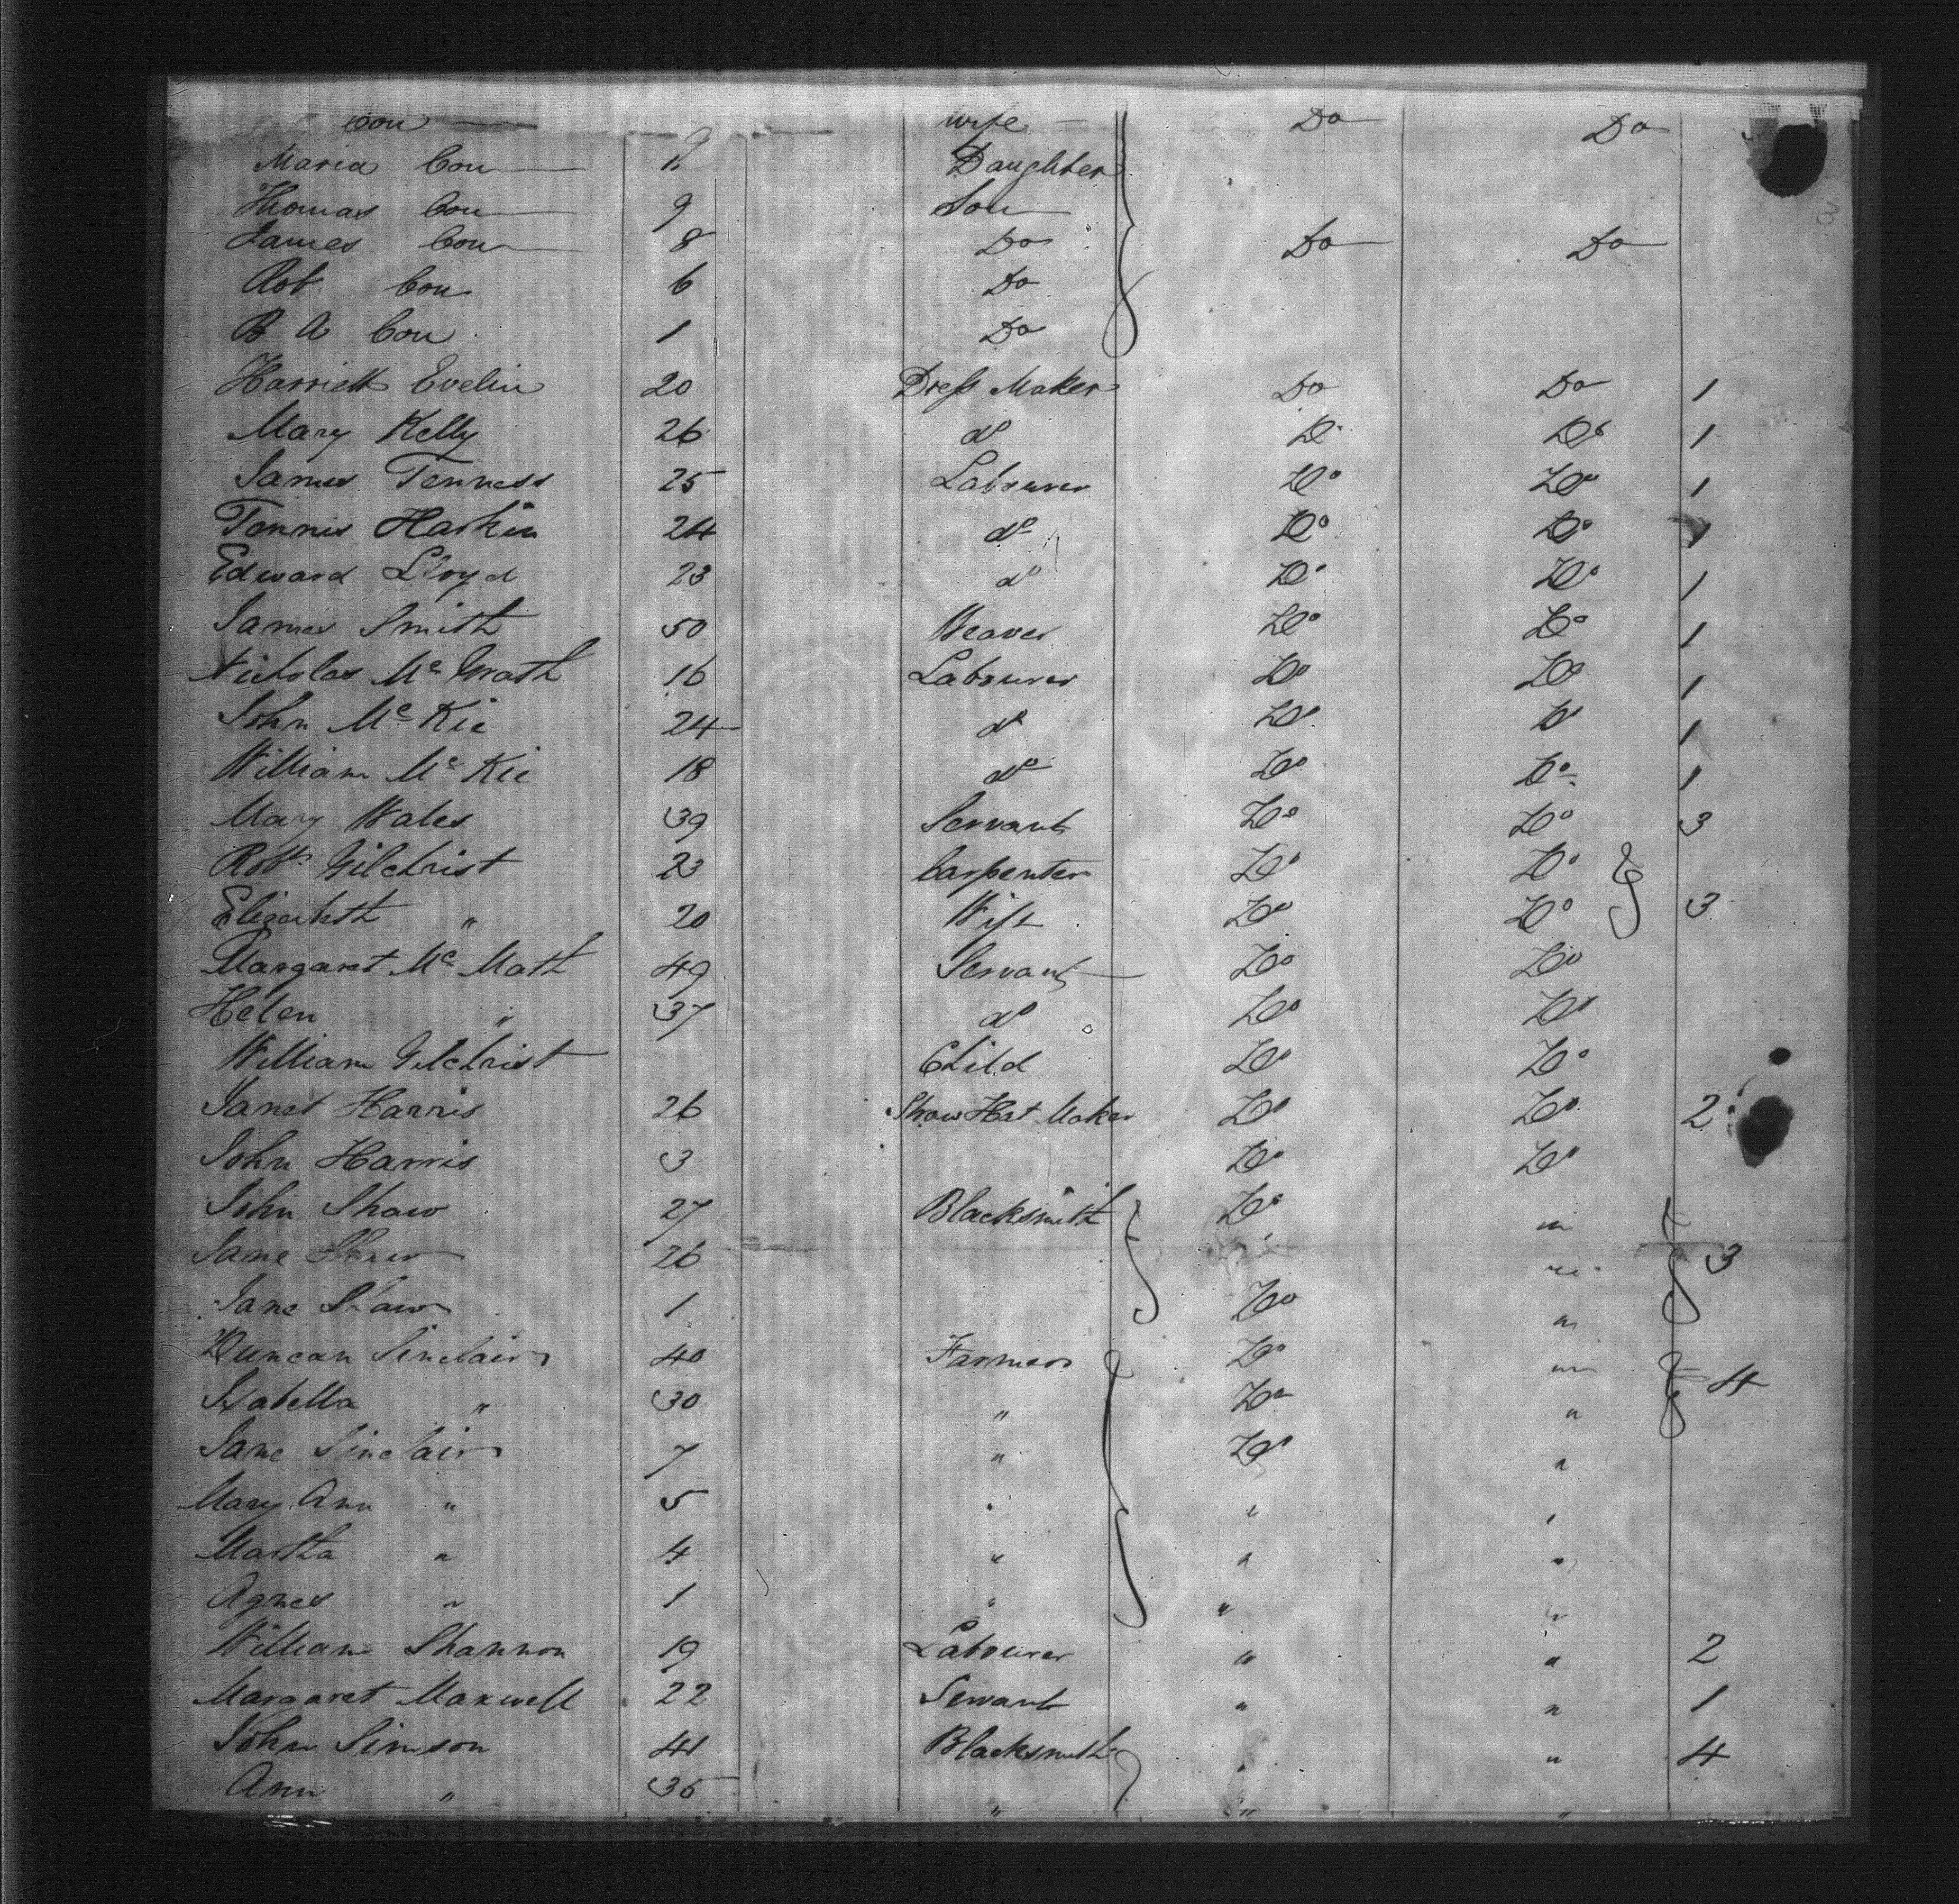 Cou wife Do Do
Maria Cou Daughter
Thomas Cou 9 Son
James Cou 8 Do Do Do
Rob Cou 6 Do
B A Cou 1 Do
Harriett Evelin 20 Dress Maker Do Do 1
Mary Kelly 26 do Do Do 1
James Tenness 25 Labourer Do Do 1
Tennis Harkin 24 do Do Do 1
Edward Lloyd 23 do Do Do 1
James Smith 50 Weaver Do Do 1
Nicholas Mc Grath 16 Labourer Do Do 1
John Mc Kie 24 do Do Do 1
William Mc Kie 18 do Do Do 1
Mary Wales 39 Servant Do Do 3
Robt Gilchrist 23 Carpenter Do Do
Elizabeth " 20 Wife Do Do 3
Margaret Mc Math 49 Servant Do Do
Helen " 37 do Do Do
William Gilchrist Child Do Do
Janet Harris 26 Straw Hat Maker Do Do 2
John Harris 3 Do Do
John Shaw 27 Blacksmith Do "
Jane Shaw 26 " 3
Jane Shaw 1 Do "
Duncan Sinclair 40 Farmer Do " 4
Isabella " 30 " Do "
Jane Sinclair 7 " Do "
Mary Ann " 5 " " "
Martha " 4 " " "
Agnes " 1 " " "
William Shannon 19 Labourer " " 2
Margaret Maxwell 22 Servant " " 1
John Simson 41 Blacksmith " " 4
Ann " 35 " " "